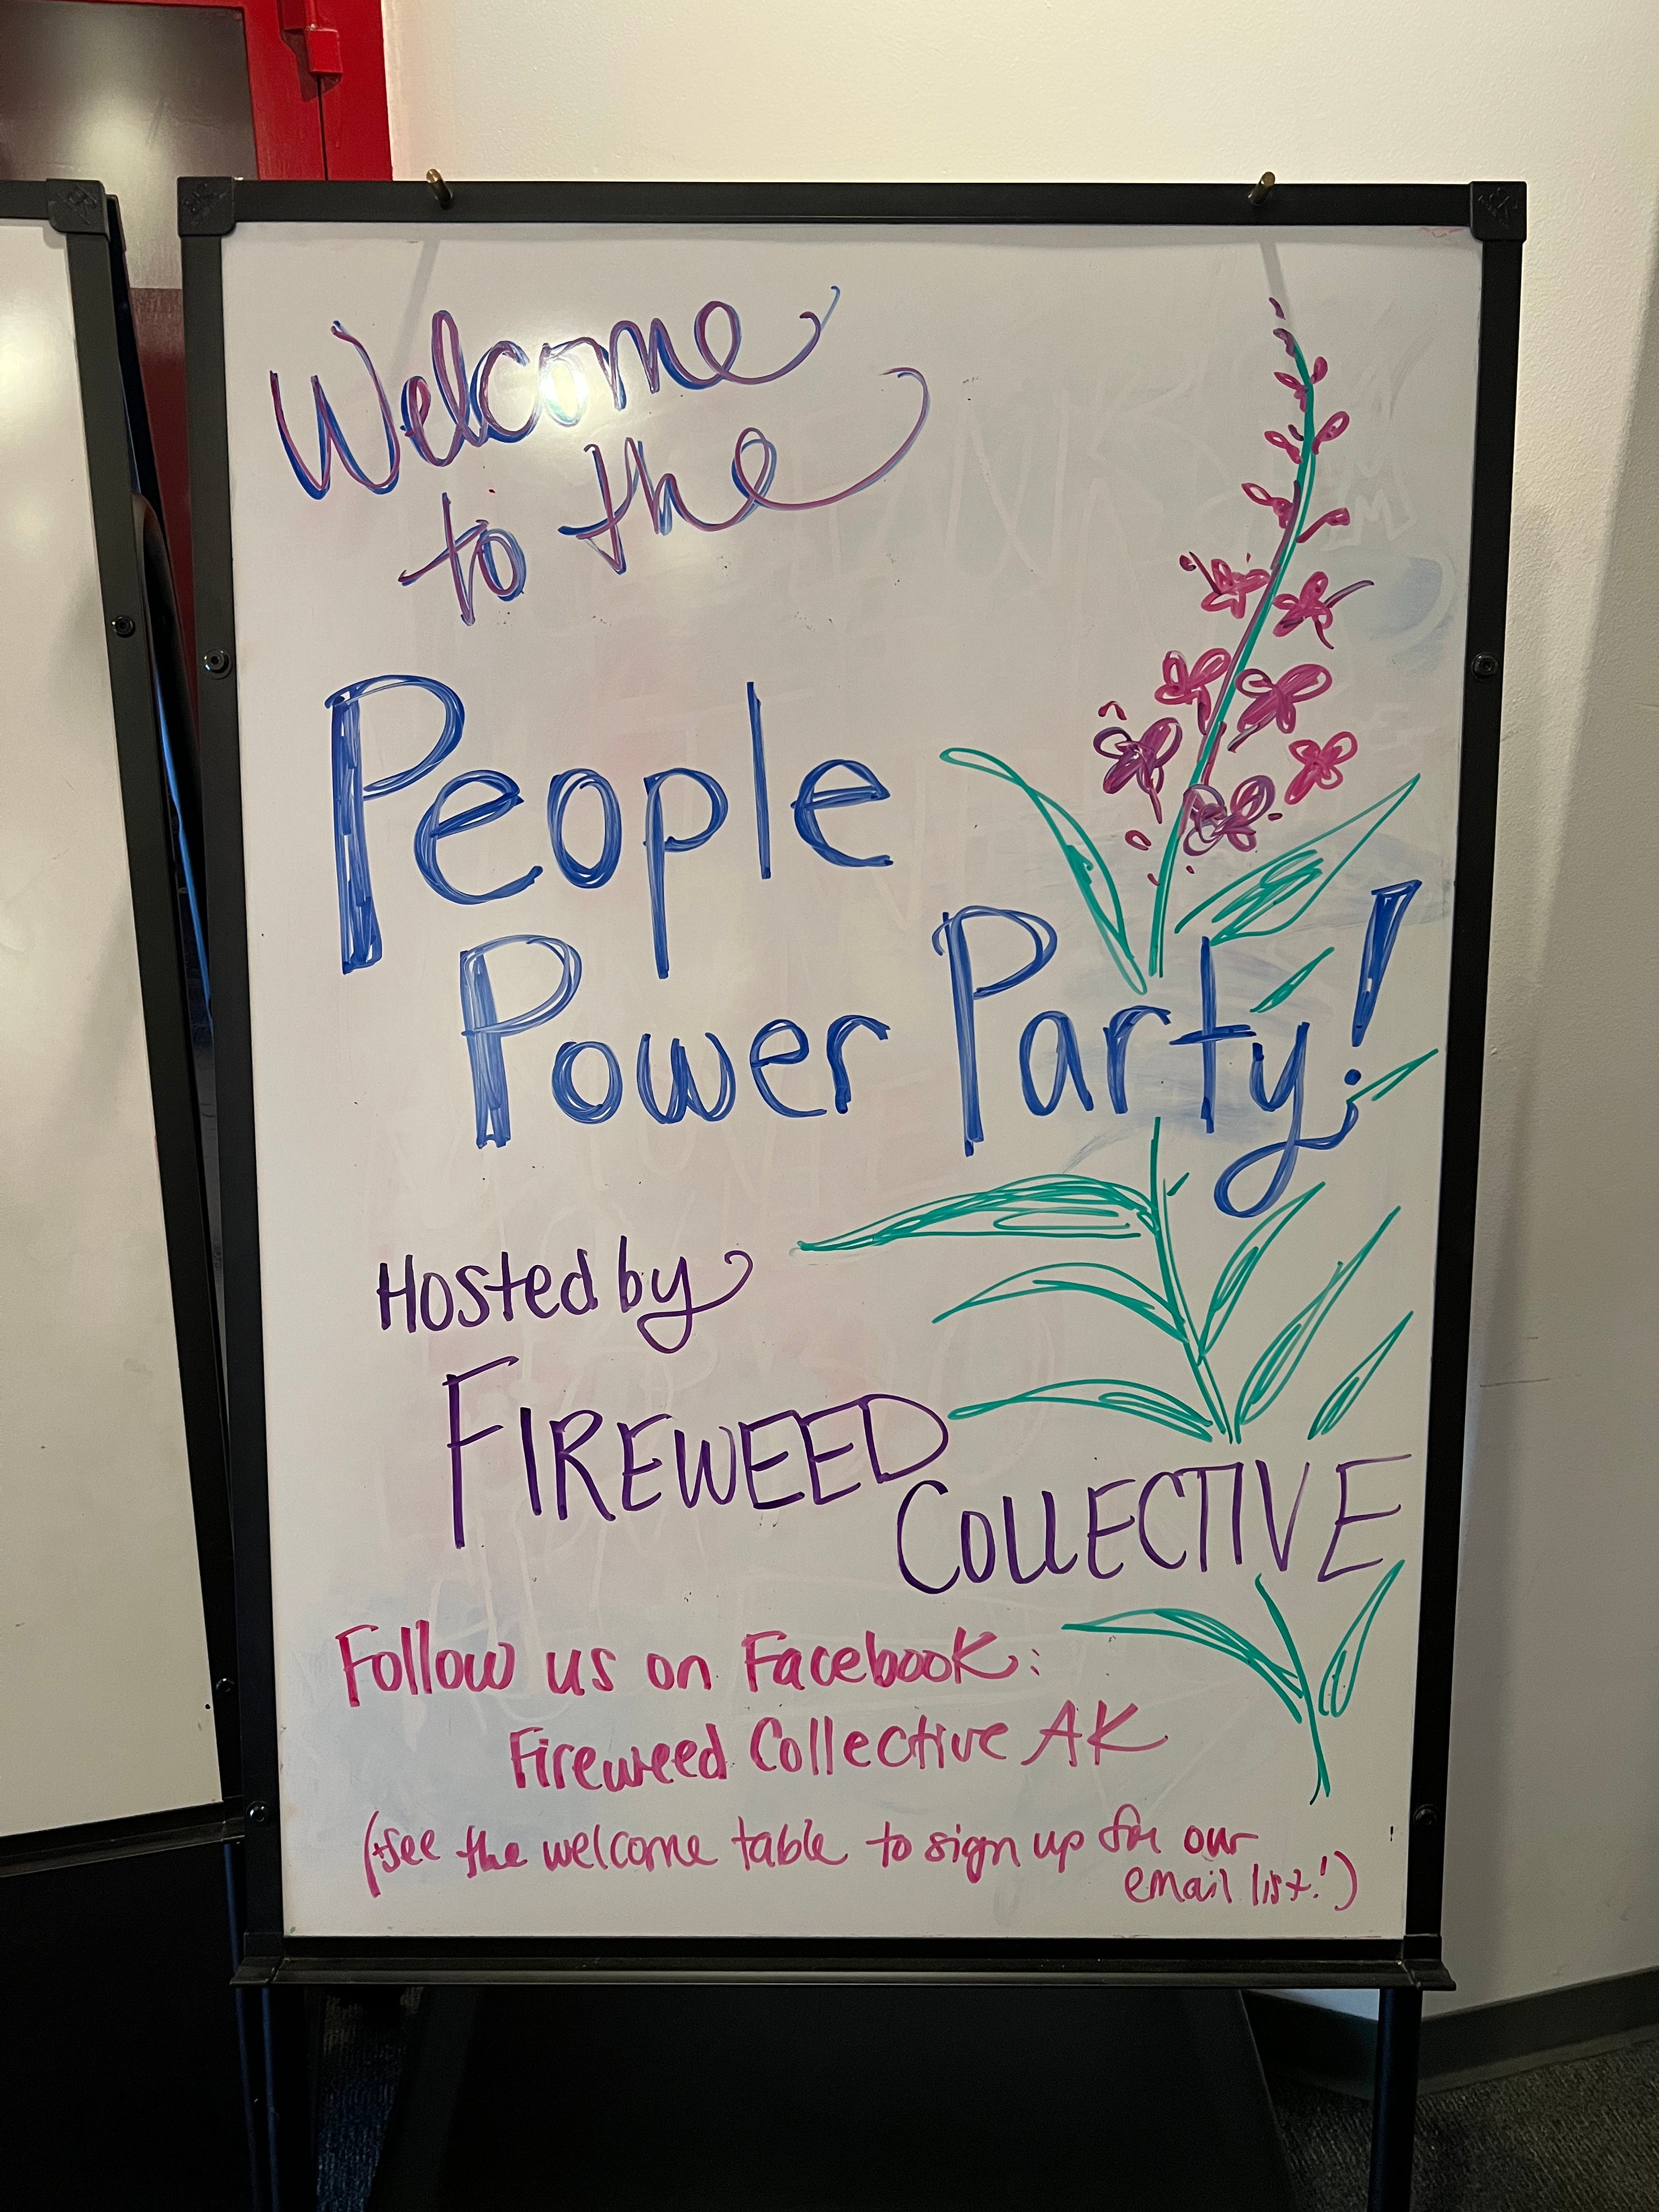 Welcome
to the
People
Power Party!
Hosted by
FIREWEED
COLLECTIVE
Follow us on Facebook:
Fireweed Collective AK
(+see the welcome table to sign up for our
email list!)